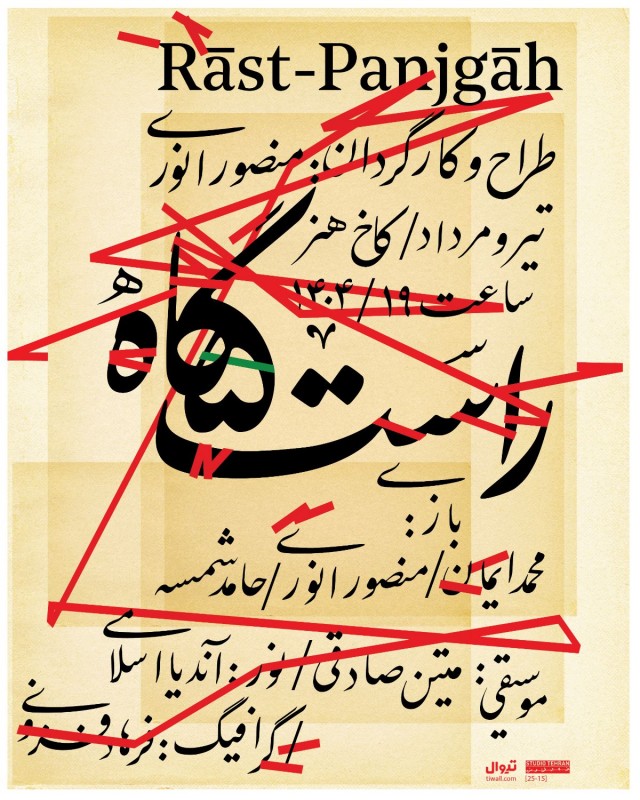 Rāst-Panjgāh
طراح و کارگردان: منصور انوری
تیر و مرداد/ کاخ هنر
ساعت ۱۹/ ۱۴۰۴
راست
پنجگاه
بازی:
محمد ایمان/ منصور انوری/ حامد شمسه
موسیقی: متین صادقی/ نور: آندیا اسلامی
/ گرافیک: فرهاد فزونی
تیوال
tiwall.com
STUDIO TEHRAN
[25-15]